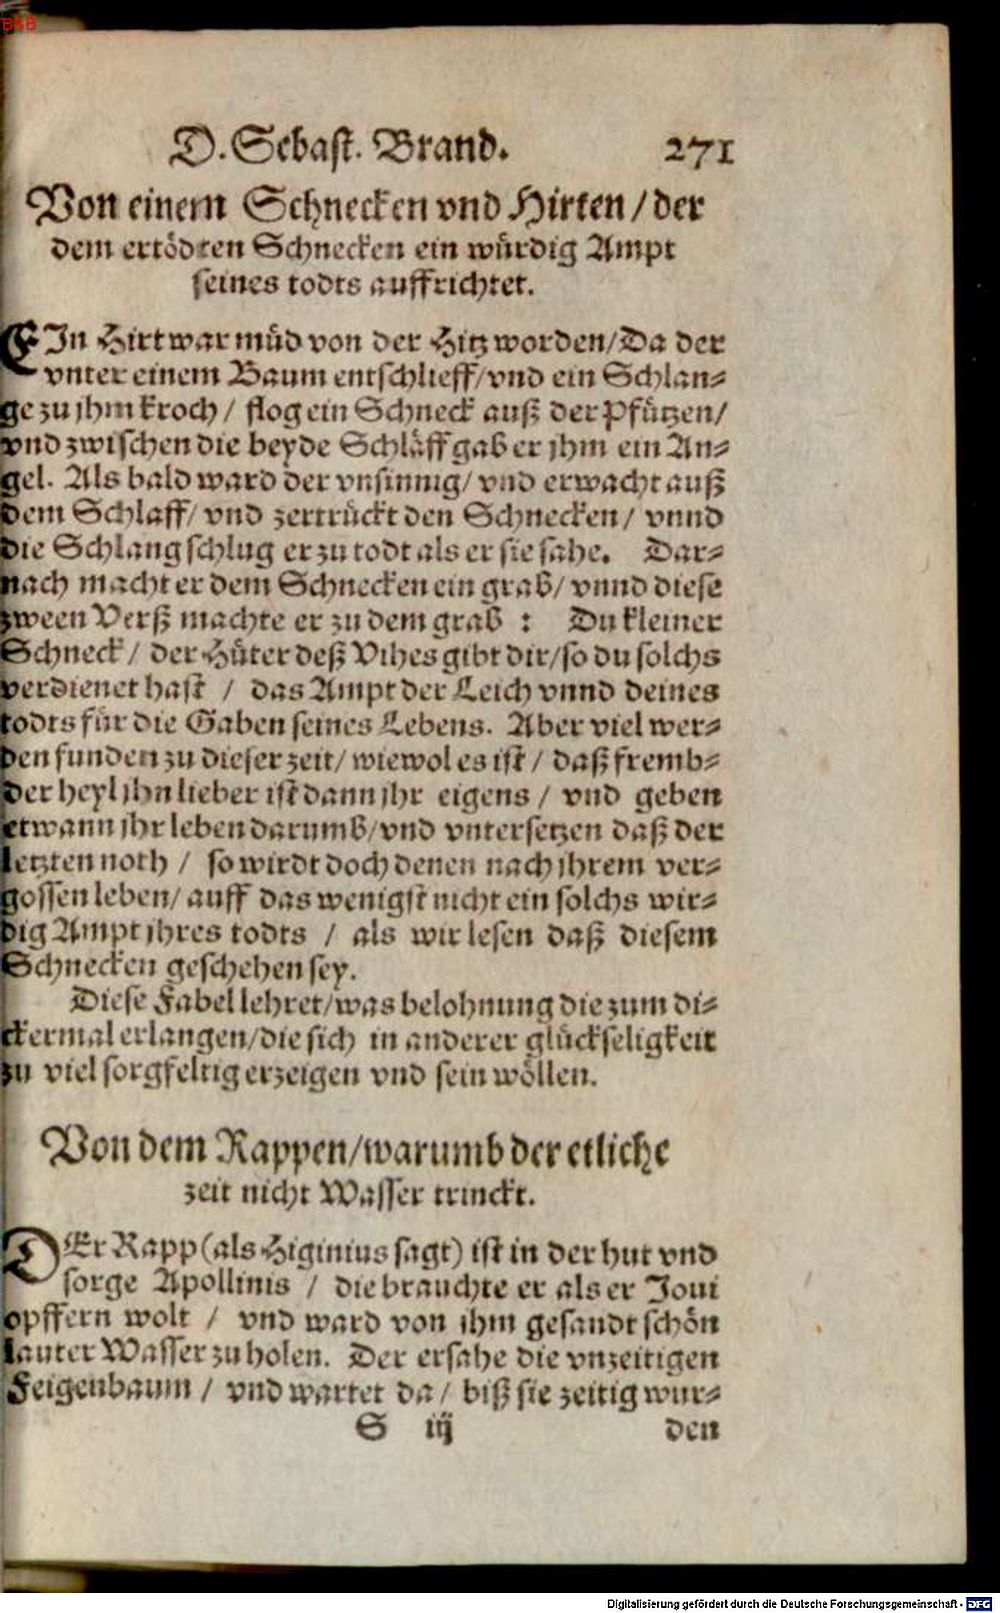 BSB
D. Sebast. Brand. 271
Von einem Schnecken vnd Hirten / der
dem ertödten Schnecken ein würdig Ampt
seines todts auffrichtet.
EIn Hirt war müd von der Hitz worden / Da der
vnter einem Baum entschlieff / vnd ein Schlan-
ge zu jhm kroch / flog ein Schneck auß der Pfützen /
vnd zwischen die beyde Schläff gab er jhm ein An-
gel. Als bald ward der vnsinnig / vnd erwacht auß
dem Schlaff / vnd zertrückt den Schnecken / vnnd
die Schlang schlug er zu todt als er sie sahe. Dar-
nach macht er dem Schnecken ein grab / vnnd diese
zween Verß machte er zu dem grab : Du kleiner
Schneck / der Hüter deß Vihes gibt dir / so du solchs
verdienet hast / das Ampt der Leich vnnd deines
todts für die Gaben seines Lebens. Aber viel wer-
den funden zu dieser zeit / wiewol es ist / daß fremb-
der heyl jhn lieber ist dann jhr eigens / vnd geben
etwann jhr leben darumb / vnd vntersetzen daß der
letzten noth / so wirdt doch denen nach jhrem ver-
gossen leben / auff das wenigst nicht ein solchs wir-
dig Ampt jhres todts / als wir lesen daß diesem
Schnecken geschehen sey.
Diese Fabel lehret / was belohnung die zum di-
ckermal erlangen / die sich in anderer glückseligkeit
zu viel sorgfeltig erzeigen vnd sein wöllen.
Von dem Rappen / warumb der etliche
zeit nicht Wasser trinckt.
DEr Rapp (als Higinius sagt) ist in der hut vnd
sorge Apollinis / die brauchte er als er Joui
opffern wolt / vnd ward von jhm gesandt schön
lauter Wasser zu holen. Der ersahe die vnzeitigen
Feigenbaum / vnd wartet da / biß sie zeitig wur-
S iij den
Digitalisierung gefördert durch die Deutsche Forschungsgemeinschaft - DFG